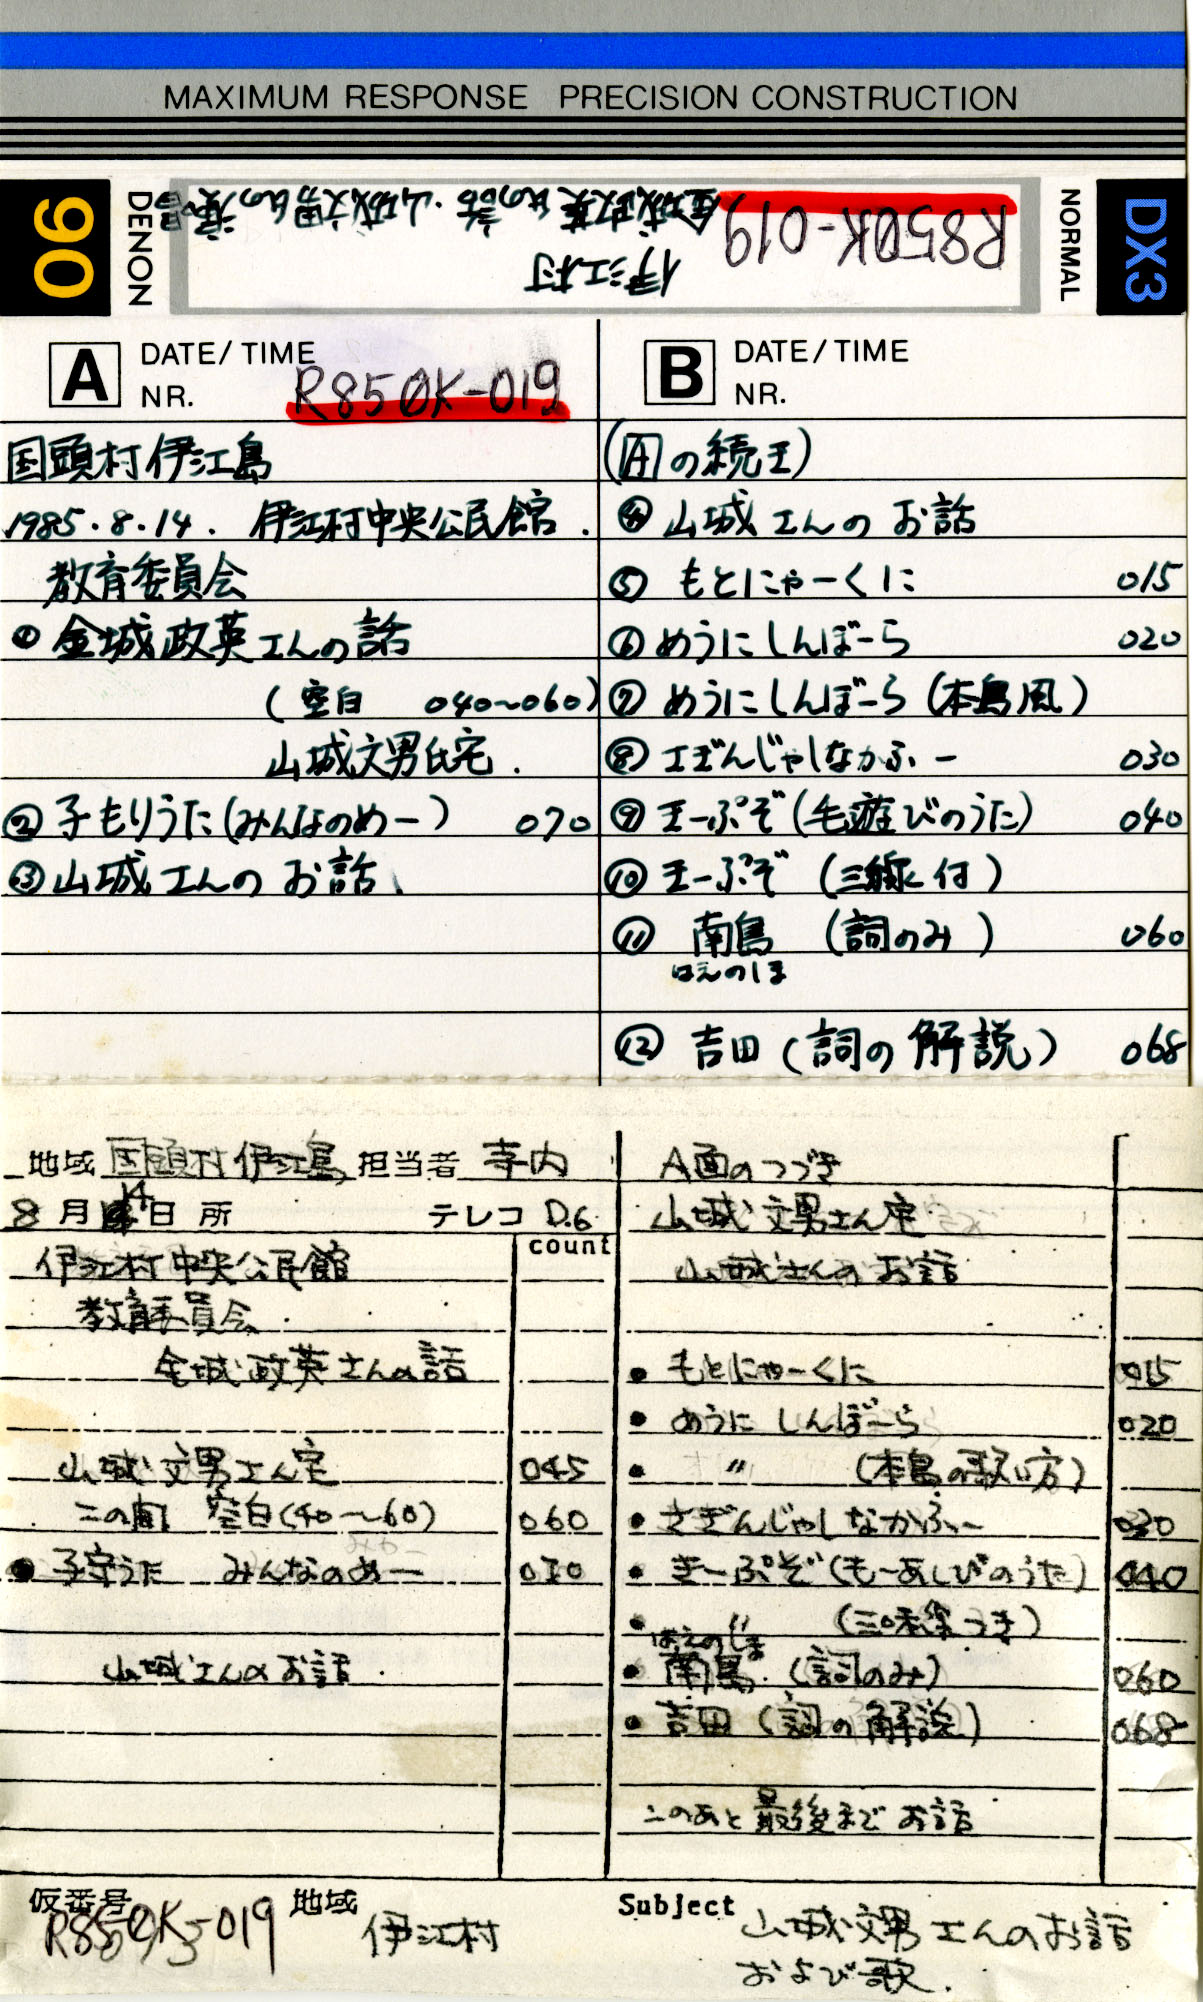 MAXIMUM RESPONSE PRECISION CONSTRUCTION
90
DENON
R850K-019
伊江村
金城政英氏の話・山城文男氏の演唱
NORMAL
DX3
A DATE/TIME
NR. R850K-019
国頭村伊江島
1985.8.14. 伊江村中央公民館.
教育委員会
① 金城政英さんの話
(空白 040~060)
山城文男氏宅.
② 子もりうた(みんなのめー) 070
③ 山城さんのお話、
B DATE/TIME
NR.
(Aの続き)
④ 山城さんのお話
⑤ もとにゃーくに 015
⑥ めうにしんぼーら 020
⑦ めうにしんぼーら(本島風)
⑧ さぎんじゃしなかふー 030
⑨ きーぷぞ(毛遊びのうた) 040
⑩ きーぷぞ (三線付)
⑪ 南島 (詞のみ) 060
はえのしま
⑫ 吉田(詞の解説) 068
地域 国頭村伊江島 担当者 寺内
8月14日 所 テレコ D.6.
count
伊江村中央公民館
教育委員会.
金城政英さんの話
山城文男さん宅 045
この間 空白(40~60) 060
● 子守うた みんなのめー 070
山城さんのお話
A面のつづき
山城文男さん宅
山城さんのお話
● もとにゃーくに 015
● めうにしんぼーら 020
● 〃 (本島の歌い方)
● さぎんじゃしなかふー 030
● きーぷぞ(もーあしびのうた) 040
● 〃 (三味線つき)
はえのじま
● 南島.(詞のみ) 060
● 吉田(詞の解説) 068
このあと最後までお話
仮番号 R850K-019
地域 伊江村
Subject 山城文男さんのお話
および歌.